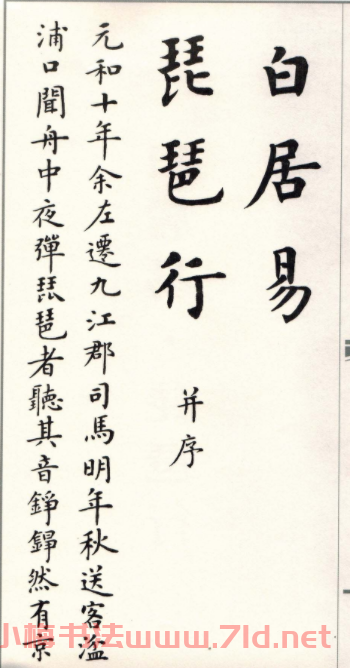 白居易
琵琶行
并序
元和十年余左遷九江郡司馬明年秋送客湓
浦口聞舟中夜彈琵琶者聽其音錚錚然有京
小楷书法www.7ld.net